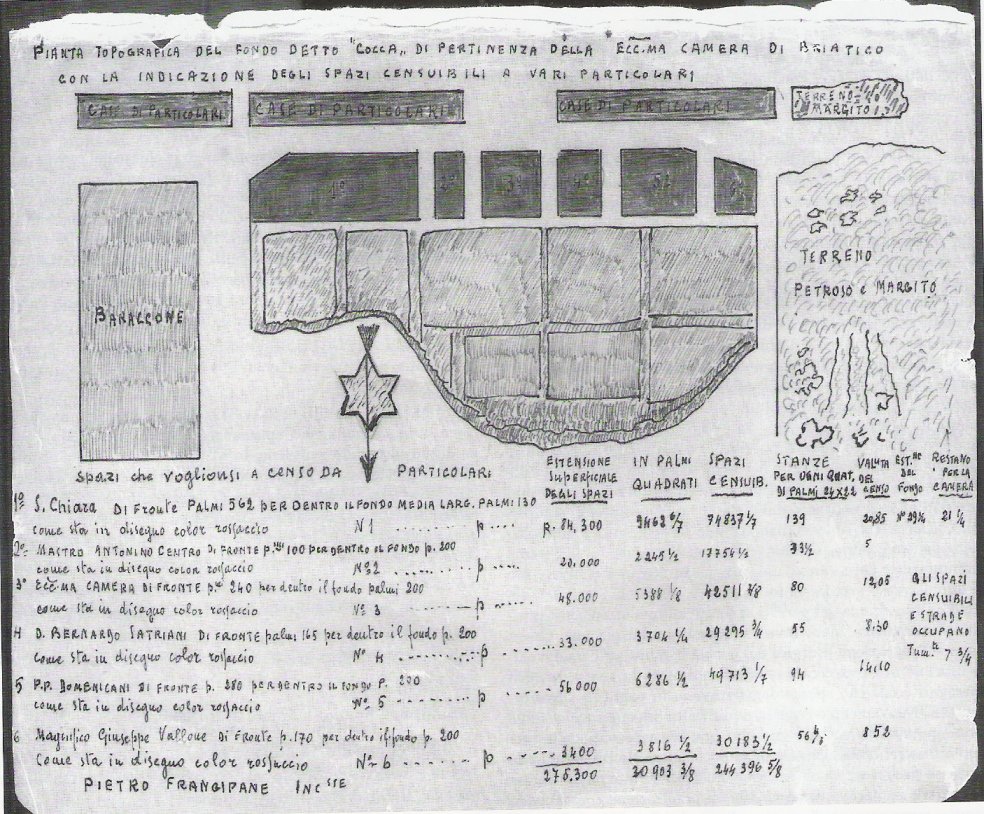 PIANTA TOPOGRAFICA DEL FONDO DETTO "COCCA„ DI PERTINENZA DELLA "ECC:MA CAMERA DI BRIATICO
CON LA INDICAZIONE DEGLI SPAZI CENSUIBILI A VARI PARTICOLARI
CASE DI PARTICOLARI CASE DI PARTICOLARI CASE DI PARTICOLARI TERRENO MARGITO
1º 2º 3º 4º 5º 6º
BARACCONE
TERRENO
PETROSO e MARGITO
Spazi che voglionsi A CENSO DA PARTICOLARI
ESTENSIONE SUPERFICIALE DEGLI SPAZI
IN PALMI QUADRATI
SPAZI CENSUIB.
STANZE PER OGNI QUAT. DI PALMI 24X22
VALUTA DEL CENSO
EST.NE DEL FONDO
RESTANO PER LA CAMERA
1º S. Chiara DI FRONTE PALMI 562 PER DENTRO IL FONDO MEDIA LARG. PALMI 130
come sta in disegno color rossaccio N 1 p P. 84,300 9462 6/7 74837 1/7 139 20,85 Nº 29 1/4 21 1/4
2º MASTRO ANTONINO CENTRO DI FRONTE p. 100 PER DENTRO IL FONDO p. 200
come sta in disegno color rossaccio Nº 2 p 20.000 2245 1/2 17754 1/2 33 1/2 5
3º ECC:MA CAMERA DI FRONTE p. 240 per dentro il fondo palmi 200
come sta in disegno color rossaccio Nº 3 p 48.000 5388 1/8 42511 7/8 80 12,05
GLI SPAZI CENSUIBILI E STRADE OCCUPANO Tum.te 7 3/4
4 D. BERNARDO SATRIANI DI FRONTE palmi 165 per dentro il fondo p. 200
come sta in disegno color rossaccio Nº 4 p 33.000 3704 1/4 29295 3/4 55 8.30
5 P.P. DOMENICANI DI FRONTE p. 280 PER DENTRO IL FONDO P. 200
come sta in disegno color rossaccio Nº 5 p 56000 6286 1/2 49713 1/7 94 14,10
6 Magnifico Giuseppe Vallone DI Fronte p. 170 per dentro il fondo p. 200
Come sta in disegno color rossaccio Nº 6 p 3400 3816 1/2 30183 1/2 56 852
275.300 30903 3/8 244396 5/8
PIETRO FRANGIPANE INC SSE